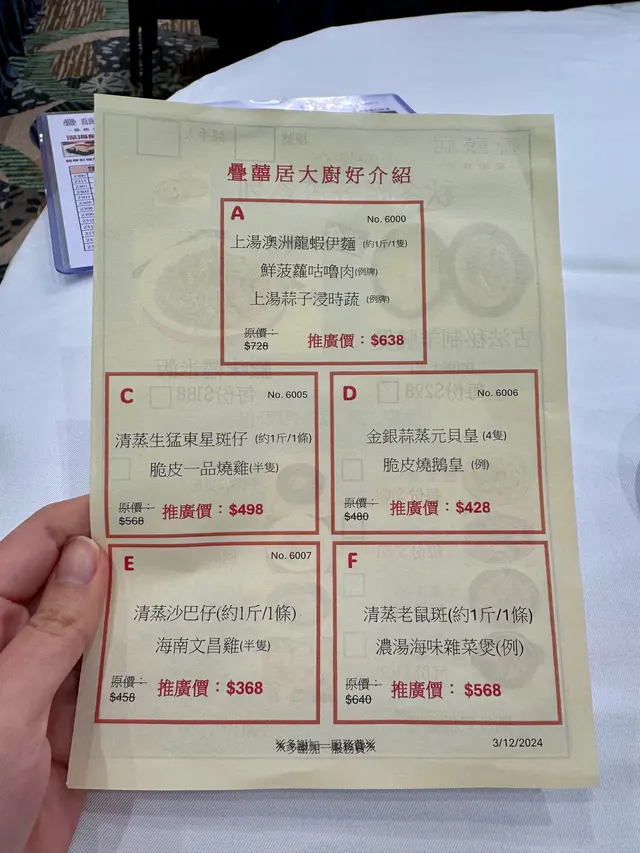 疊囍居大廚好介紹
A
No. 6000
上湯澳洲龍蝦伊麵 (約1斤/1隻)
鮮菠蘿咕嚕肉(例牌)
上湯蒜子浸時蔬 (例牌)
原價：
$728
推廣價：$638
C
No. 6005
清蒸生猛東星斑仔 (約1斤/1條)
脆皮一品燒雞(半隻)
原價：
$568
推廣價：$498
D
No. 6006
金銀蒜蒸元貝皇 (4隻)
脆皮燒鵝皇 (例)
原價：
$480
推廣價：$428
E
No. 6007
清蒸沙巴仔(約1斤/1條)
海南文昌雞(半隻)
原價：
$458
推廣價：$368
F
清蒸老鼠斑(約1斤/1條)
濃湯海味雜菜煲(例)
原價：
$640
推廣價：$568
3/12/2024